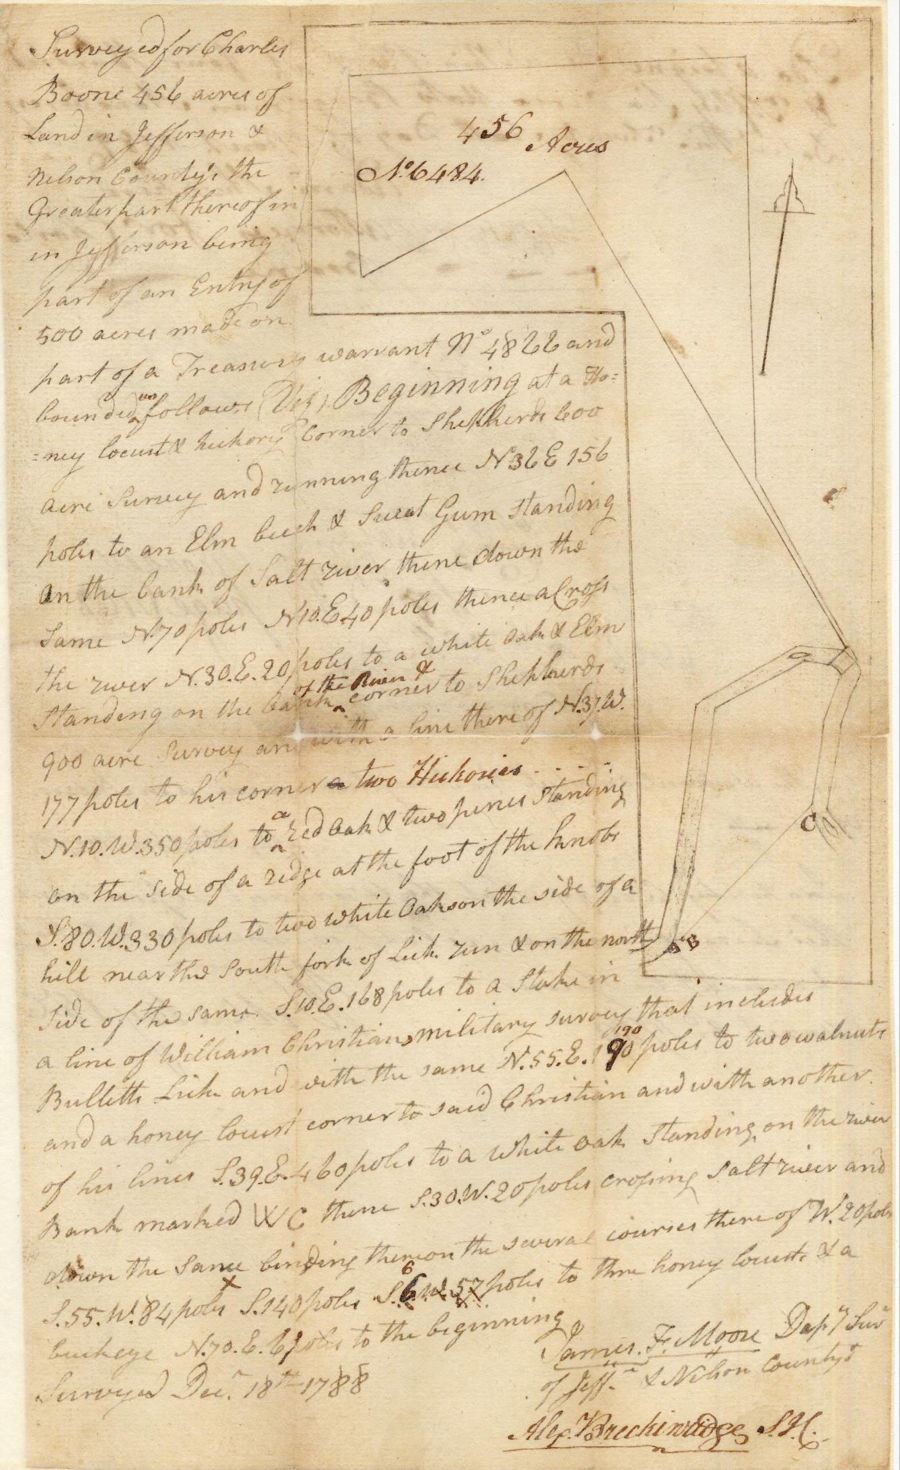 Surveyed for Charles
Boone 456 acres of
Land in Jefferson &
Nelson County's the
Greater part thereof in
in Jefferson being
part of an Entry of
500 acres made on
part of a Treasury warrant No 4822 and
bounded as follows (Viz) Beginning at a Ho=
=ney locust & hickory Corner to Shepherds 600
acre Survey and running thence N32E 156
poles to an Elm beech & Sweet Gum standing
on the bank of Salt river thence down the
same N70 poles N10.E40 poles thence aCross
the river N.30.E.20 poles to a white oak & Elm
standing on the bank of the River & corner to Shepherds
900 acre Survey and with a line there of N37W.
177 poles to his corner two Hickories
N.10.W.350 poles to a Red Oak & two pines standing
on the side of a ridge at the foot of the Knobs
S.80.W.330 poles to two white Oaks on the side of a
hill near the south fork of Lick run & on the north
side of the same S.10.E.168 poles to a Stake in
a line of William Christians military survey that includes
Bullitts Lick and with the same N.55.E.190 190 poles to two walnuts
and a honey locust corner to said Christian and with another
of his lines S.39.E.460 poles to a white oak standing on the river
Bank marked WC thence S.30.W.20 poles crossing Salt river and
down the same binding thereon the several courses there of W.20 poles
S.55.W.84 poles S.140 poles poles to three honey locusts & a
buckeye N.70.E. poles to the beginning
Surveyed Decr. 18th 1788
James. F. Moore Dapy Sur
of Jeff.n & Nelson Countys
Alex. Breckinridge S.J.C.
456 Acres
No 6484.
C
B